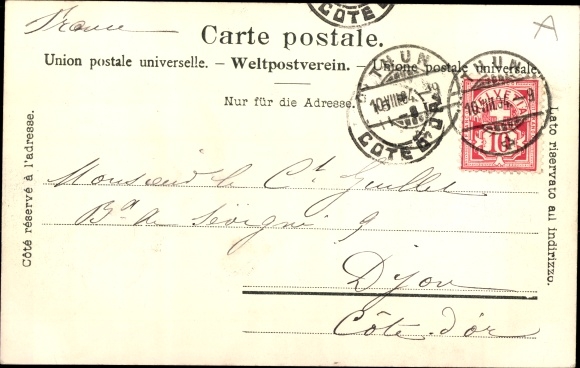 France
A
Carte postale.
Union postale universelle. – Weltpostverein. – Unione postale universale.
Nur für die Adresse.
THUN
10.VIII.04
THUN
10.VIII.04
HELVETIA
10
COTE D'OR
COTE D
Côté réservé à l'adresse.
Lato riservato all indirizzo.
Monsieur le Ct Guillet
Bd de Sévigné 9
Dijon
Côte d'or